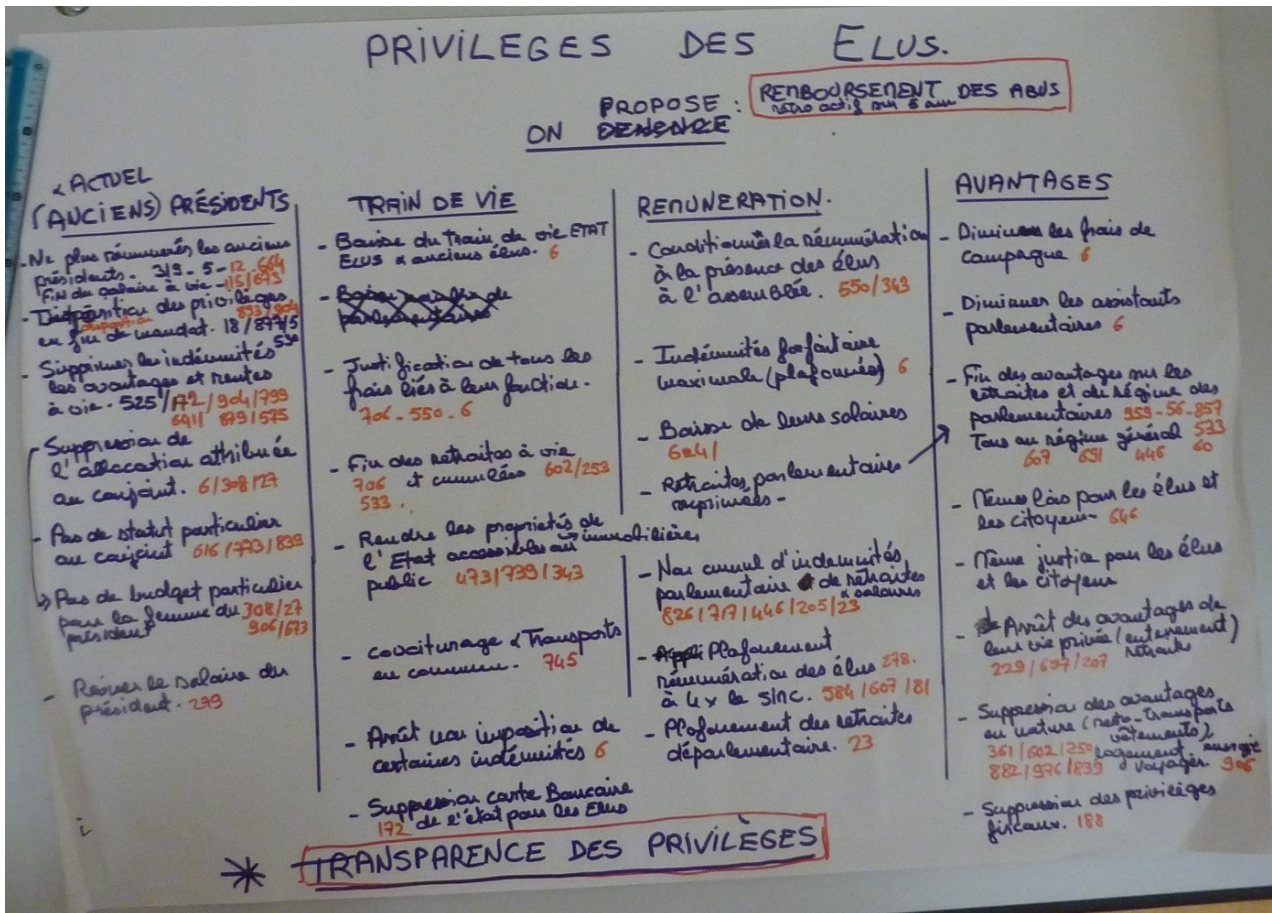 PRIVILEGES DES ELUS.
PROPOSE : REMBOURSEMENT DES ABUS
rétro actif sur 5 ans
ON DENONCE
& ACTUEL
(ANCIENS) PRÉSIDENTS
- Ne plus rémunérés les anciens
présidents - 319 - 5 - 12 - 664
Fin du salaire à vie - 115/673
- Disparition des privilèges 893/904
en fin de mandat. 18/877/5
- Supprimer les indémnités 530
les avantages et rentes
à vie. 525/172/904/799
691/879/575
- Suppression de
l'allocation attribuée
au conjoint. 6/308/27
- Pas de statut particulier
au conjoint 616/773/839
→ Pas de budget particulier
pour la femme du 308/27
président 906/673
- Réviser le salaire du
président. 299
TRAIN DE VIE
- Baisse du train de vie ETAT
ELUS & anciens élus. 6
- Justification de tous les
frais liés à leur fonction.
706 - 550 - 6
- Fin des retraites à vie
706 et cumulées 602/253
533.
- Rendre les propriétés de
l'Etat accessibles au → immobilières
public 473/739/343
- covoiturage & Transports
en commun. 745
- Arrêt non imposition de
certaines indémnités 6
- Suppression carte Bancaire
172 de l'état pour les Elus
REMUNERATION.
- Conditionner la rémunération
à la présence des élus
à l'assemblée. 550/343
- Indémnités forfaitaire
maximale (plafonnés) 6
- Baisse de leurs salaires
624/
- Retraites parlementaires
supprimées -
- Non cumul d'indemnités
parlementaire de retraites
& salaires
826/717/446/205/23
- Plafonement
rémunération des élus 278.
à 4x le SMC. 584/607/81
- Plafonement des retraites
départementaire. 23
AVANTAGES
- Diminuer les frais de
campagne 6
- Diminuer les assistants
parlementaires 6
- Fin des avantages sur les
retraites et du régime des
parlementaires 959-56-857
Tous au régime général 533
607 651 446 60
- Mêmes lois pour les élus et
les citoyens 646
- Même justice pour les élus
et les citoyens
- Arrêt des avantages de
leur vie privée (enterrement)
retraite
229/657/207
- Suppression des avantages
en nature (resto-transports
vêtements)
361/602/250 logement, énergie
882/976/839 voyages. 906
- Suppression des privilèges
fiscaux. 188
* TRANSPARENCE DES PRIVILÈGES